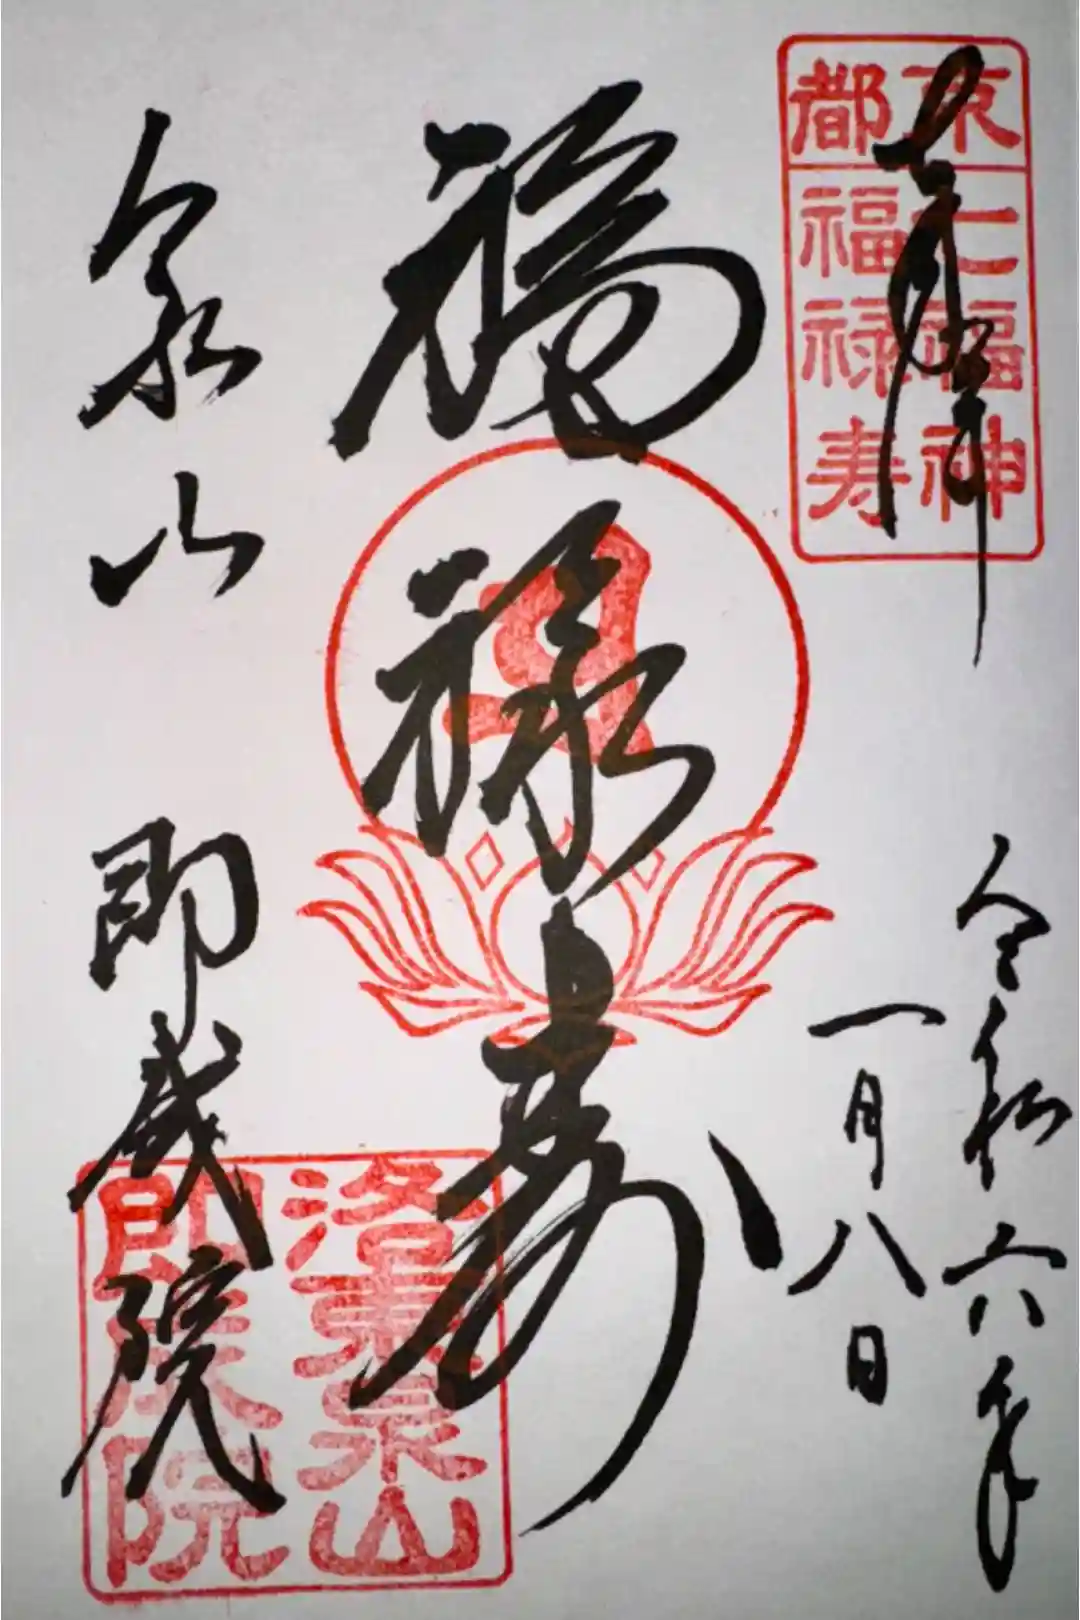 奉拝
東
都
七福神
福禄寿
令和六年
一月八日
福禄寿
泉山
即成院
洛東泉山
即成院